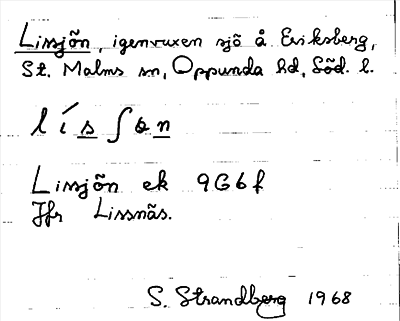 Lissjön, igenvuxen sjö å Eriksberg,
St. Malms sn, Oppunda hd, Söd. l.
lísʃøn
Lissjön ek 9G6f
Jfr Lissnäs.
S. Strandberg 1968